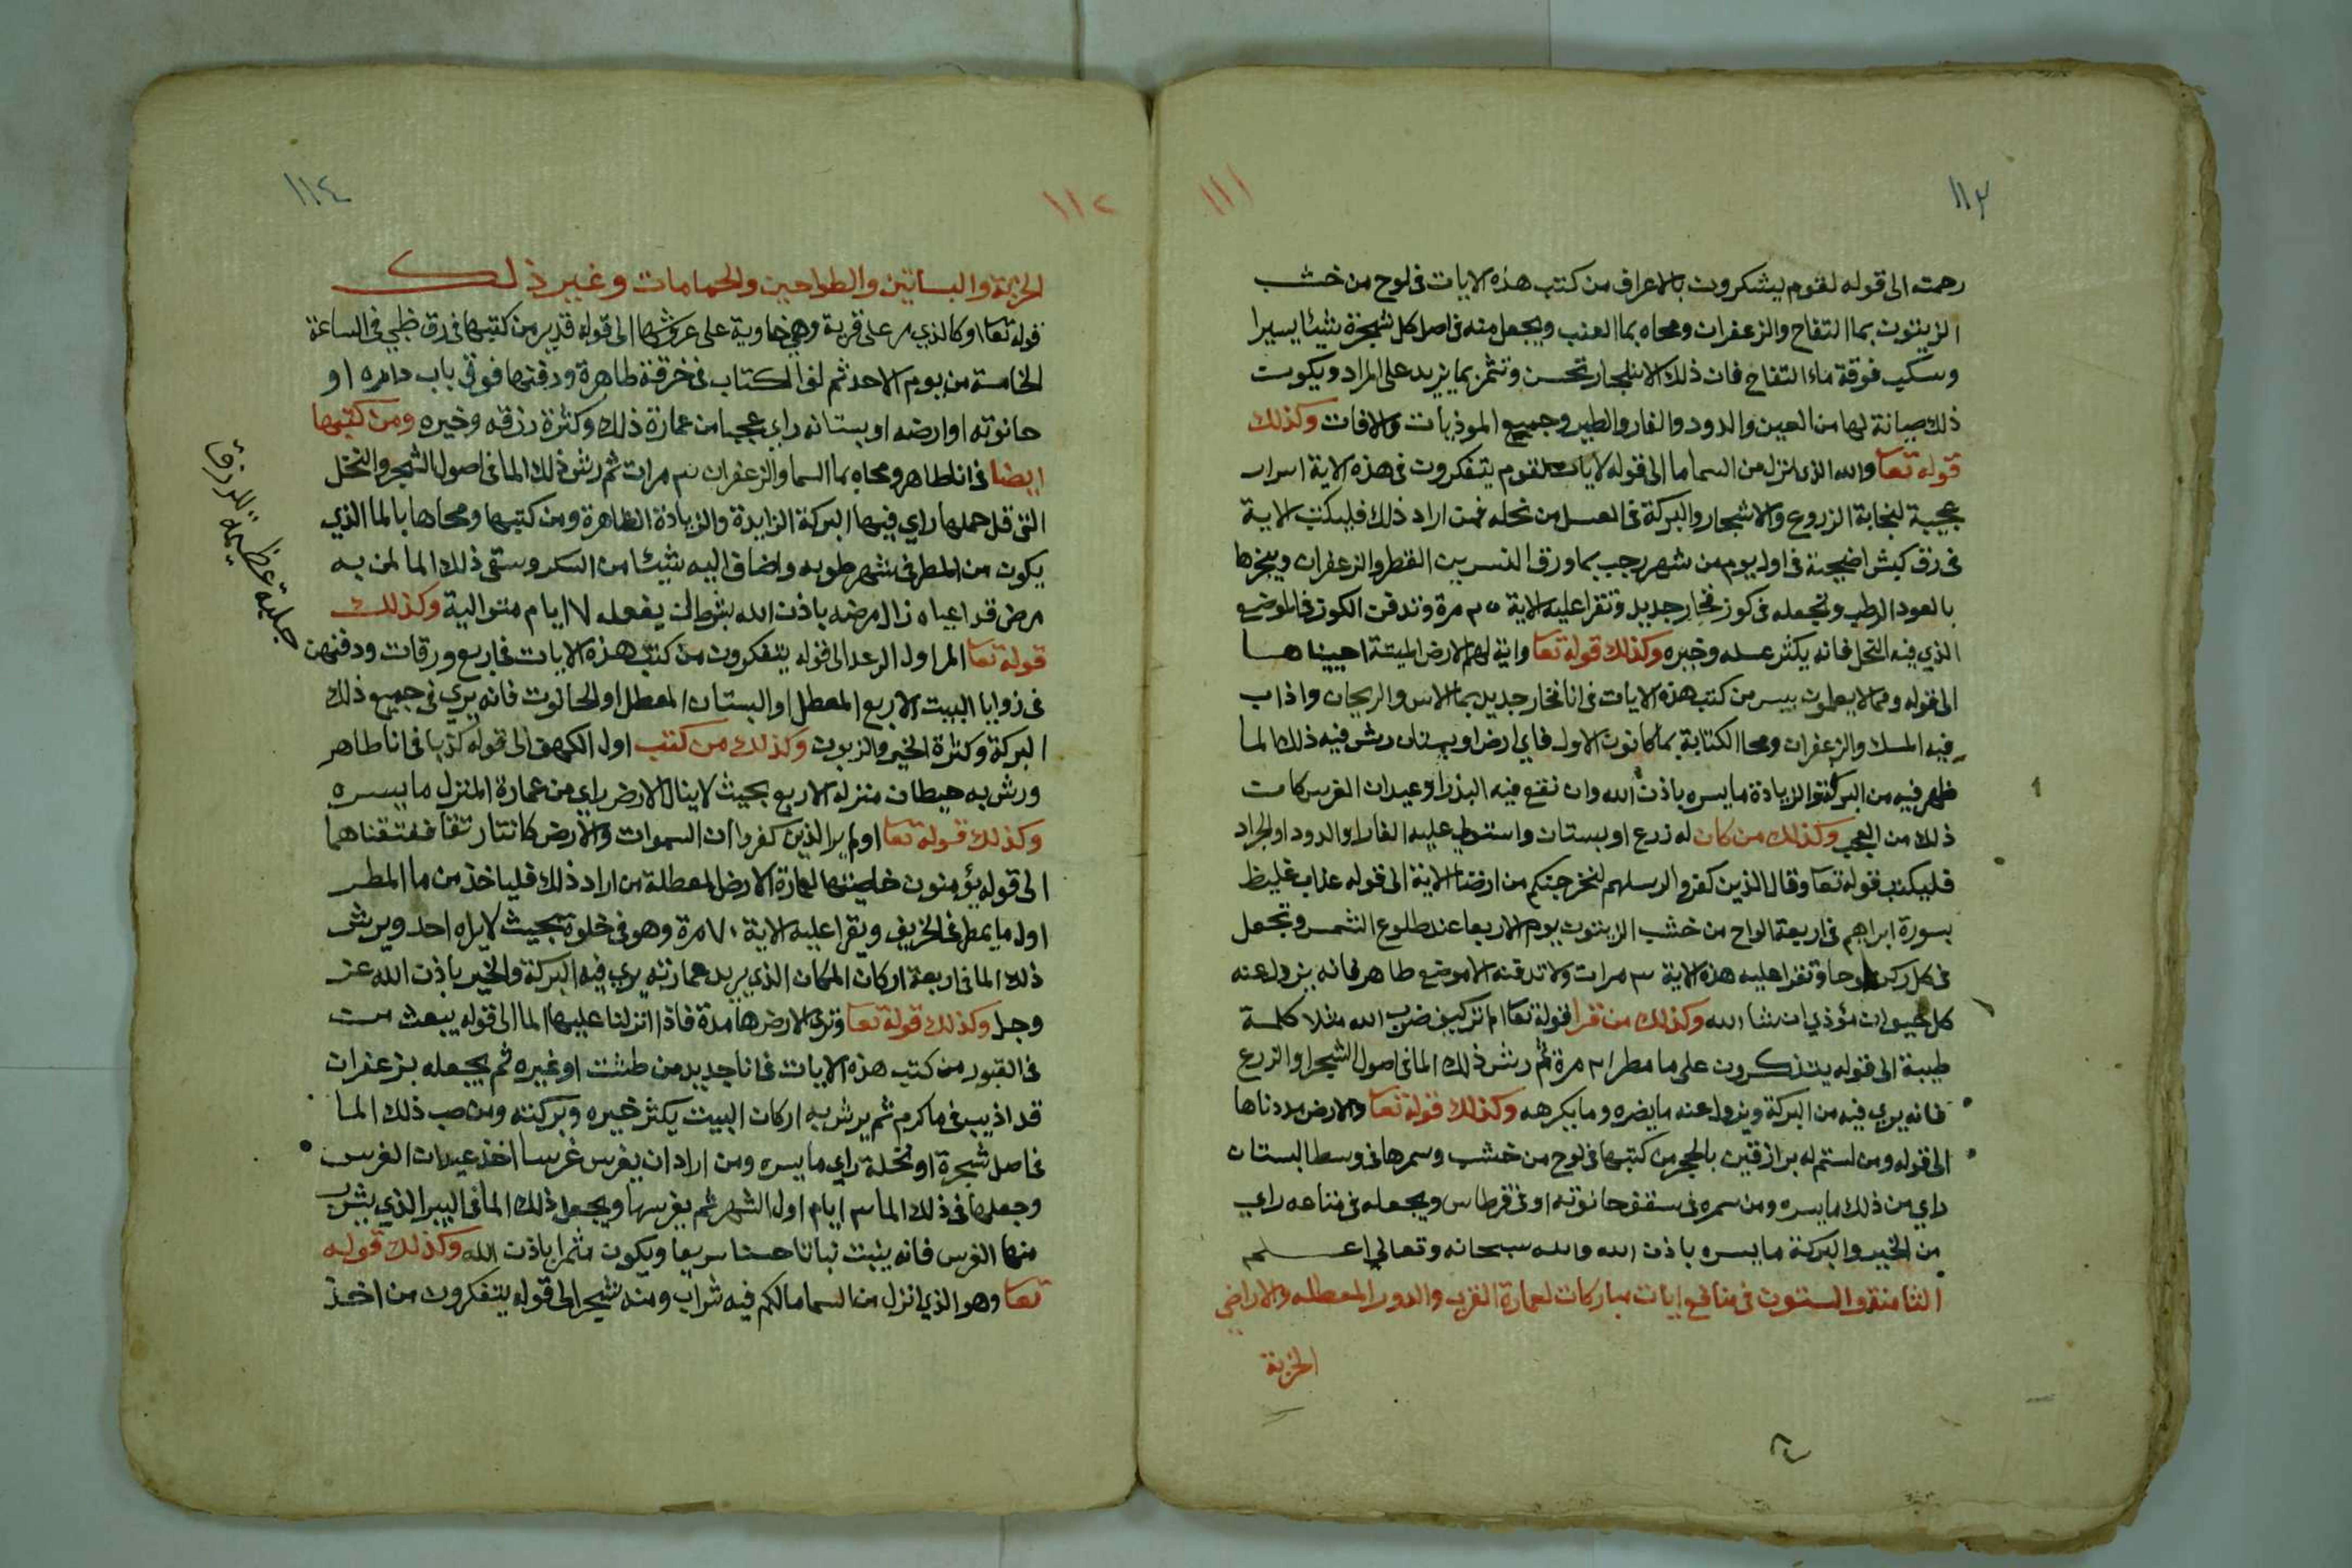 ١١٣
١١١
رحمته الى قوله لقوم يشكرون بالاعراف من كتب هذه الايات فى لوح من خشب
الزيتون بما التفاح والزعفران ومحاه بما العنب ويجعل منه فى اصل كل شجرة شيئا يسيرا
وسكب فوقه ماء التفاح فان ذلك الاشجار تحسن وتثمر بما يزيد على المراد ويكون
ذلك صيانة لها من العين والدود والفار والطير وجميع الموذيات والافات وكذلك
قوله تعا والله الذى انزل من السما ما الى قوله لايات لقوم يتفكرون فى هذه الاية اسرار
عجيبة لنجابة الزروع والاشجار والبركة فى العسل من نحله فمن اراد ذلك فليكتب الاية
فى رق كبش اضحية فى اول يوم من شهر رجب بما ورق النسرين القطر والزعفران ويبخرها
بالعود الرطب وتجعله فى كوز فخار جديد وتقرا عليه الاية ٣٥ مرة وتدفن الكوز فى الموضع
الذي فيه النحل فانه يكثر عسله وخيره وكذلك قوله تعا واية لهم الارض الميتة احييناها
الى قوله ومما لا يعلمون بيس من كتب هذه الايات فى انا فخار جديد بما الاس والريحان واذاب
فيه المسك والزعفران ومحا الكتابة بما كانون الاول فاي ارض او بستان رش فيه ذلك الما
ظهر فيه من البركة والزيادة ما يسره باذن الله وان نقع فيه البذر او عيدان الغرس كانت
ذلك من العجب وكذلك من كان له زرع او بستان واستولى عليه الفار او الدود او الجراد
فليكتب قوله تعا وقال الذين كفروا لرسلهم لنخرجنكم من ارضنا الاية الى قوله عذاب غليظ
بسورة ابراهيم فى اربعة الواح من خشب الزيتون يوم الاربعا عند طلوع الشمس وتجعل
فى كل ركن لوحا وتقرا عليه هذه الاية ٣ مرات ولا تدفنه الا موضع طاهر فانه يزول عنه
كل حيوان مؤذي ان شا الله وكذلك من قرا قوله تعا الم تر كيف ضرب الله مثلا كلمة
طيبة الى قوله يتذكرون على ما مطر ٣١ مرة ثم رش ذلك الما فى اصول الشجر او الزرع
فانه يري فيه من البركة ويزول عنه ما يضره وما يكرهه وكذلك قوله تعا والارض مددناها
الى قوله ومن لستم له برازقين بالحجر من كتبها فى لوح من خشب وسمرها فى وسط البستان
راي من ذلك ما يسره ومن سمره فى سقف حانوته او فى قرطاس ويجعله فى متاعه راي
من الخير والبركة ما يسره باذن الله والله سبحانه وتعالي اعلم
الثامنة والستون فى منافع ايات مباركات لعمارة القري والدور المعطله والاراضي
الخربة
١١٤
١١٢
الخربة والبساتين والطواحين والحمامات وغير ذلك
قوله تعا او كالذي مر على قرية وهي خاوية على عروشها الى قوله قدير من كتبها فى رق ظبي فى الساعة
الخامسة من يوم الاحد ثم لف الكتاب فى خرقة طاهرة ودفنها فوق باب داره او
حانوته او ارضه او بستانه راي عجبا من عمارة ذلك وكثرة رزقه وخيره ومن كتبها
ايضا فى انا طاهر ومحاه بما السما والزعفران ٣ مرات ثم رش ذلك الما فى اصول الشجر والنخل
التى قل حملها راي فيها البركة الزايدة والزيادة الظاهرة ومن كتبها ومحاها بالما الذي
يكون من المطر فى شهر طوبه واضاف اليه شيئا من السكر وسقى ذلك الما لمن به
مرض قد اعياه زال مرضه باذن الله بشرط ان يفعله ٧ ايام متوالية وكذلك
قوله تعا المر اول الرعد الى قوله يتفكرون من كتب هذه الايات فى اربع ورقات ودفنهن
فى زوايا البيت الاربع المعطل او البستان المعطل او الحانوت فانه يري فى جميع ذلك
البركة وكثرة الخير والزبون وكذلك من كتب اول الكهف الى قوله كذبا فى انا طاهر
ورش به حيطان منزله الاربع بحيث لا ينال الارض راي من عمارة المنزل ما يسره
وكذلك قوله تعا اولم ير الذين كفروا ان السموات والارض كانتا رتقا ففتقناهما
الى قوله يؤمنون خاصيتها لعمارة الارض المعطلة من اراد ذلك فلياخذ من ما المطر
اول ما يمطر فى الخريف ويقرا عليه الاية ٧٠ مرة وهو فى خلوة بحيث لا يراه احد ويرش
ذلك الما فى اربعة اركان المكان الذي يريد عمارته يري فيه البركة والخير باذن الله عز
وجل وكذلك قوله تعا وترى الارض هامدة فاذا انزلنا عليها الما الى قوله يبعث من
فى القبور من كتب هذه الايات فى انا جديد من طشت او غيره ثم يجعله بزعفران
قد اذيب فى ما كرم ثم يرش به اركان البيت يكثر خيره وبركته ومن صب ذلك الما
فى اصل شجرة او نخلة راي ما يسره ومن اراد ان يغرس غرسا اخذ عيدان الغرس
وجعلها فى ذلك الما ٣ ايام اول الشهر ثم يغرسها ويجعل ذلك الما فى البير الذي يشرب
منها الغرس فانه ينبت نباتا حسنا سريعا ويكون مثمرا باذن الله وكذلك قوله
تعا وهو الذي انزل من السما ما لكم فيه شراب ومنه شجر الى قوله يتفكرون من اخذ
جليلة عظيمة للرزق